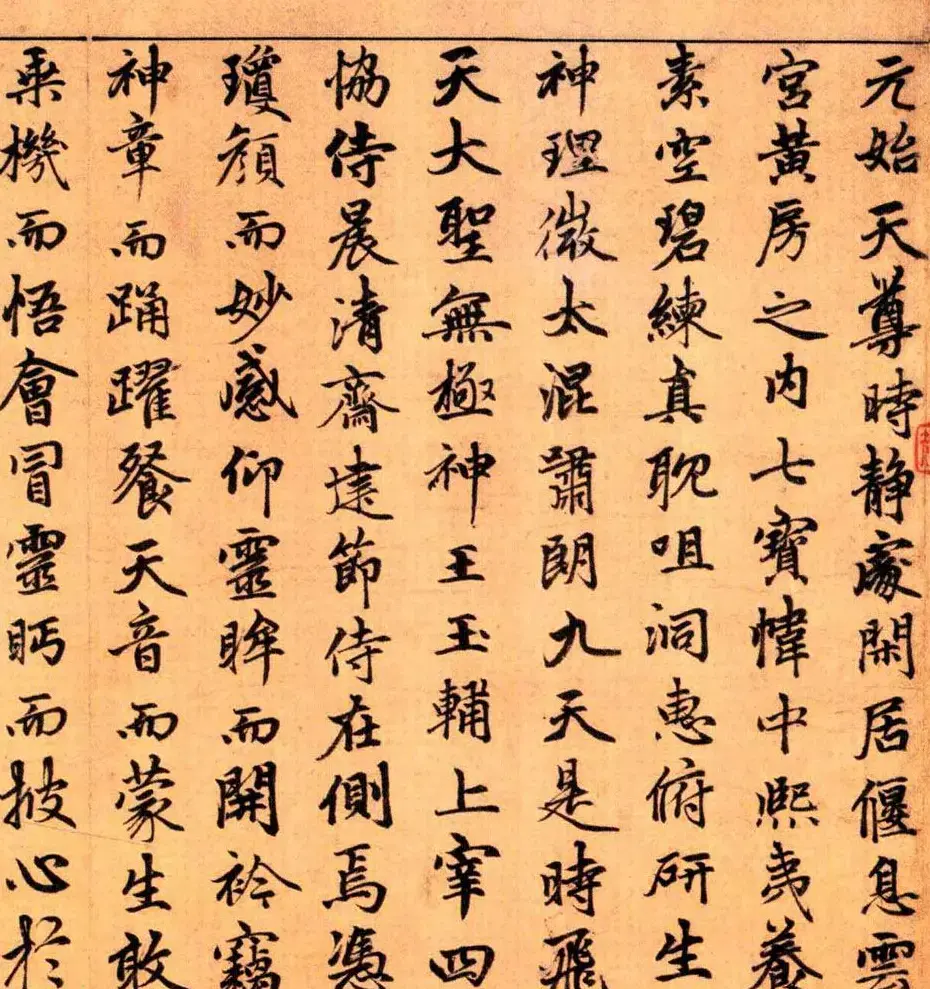 元始天尊時静處閑居偃息雲
宮黃房之內七寶幃中熙夷養
素空碧練真耽咀洞惠俯研生
神理微太混嘯朗九天是時飛
天大聖無極神王玉輔上宰四
協侍晨清齋建節侍在側焉憑
瓊顏而妙感仰靈眸而開衿竊
神章而踊躍餐天音而蒙生敢
乘機而悟會冒靈眄而披心於